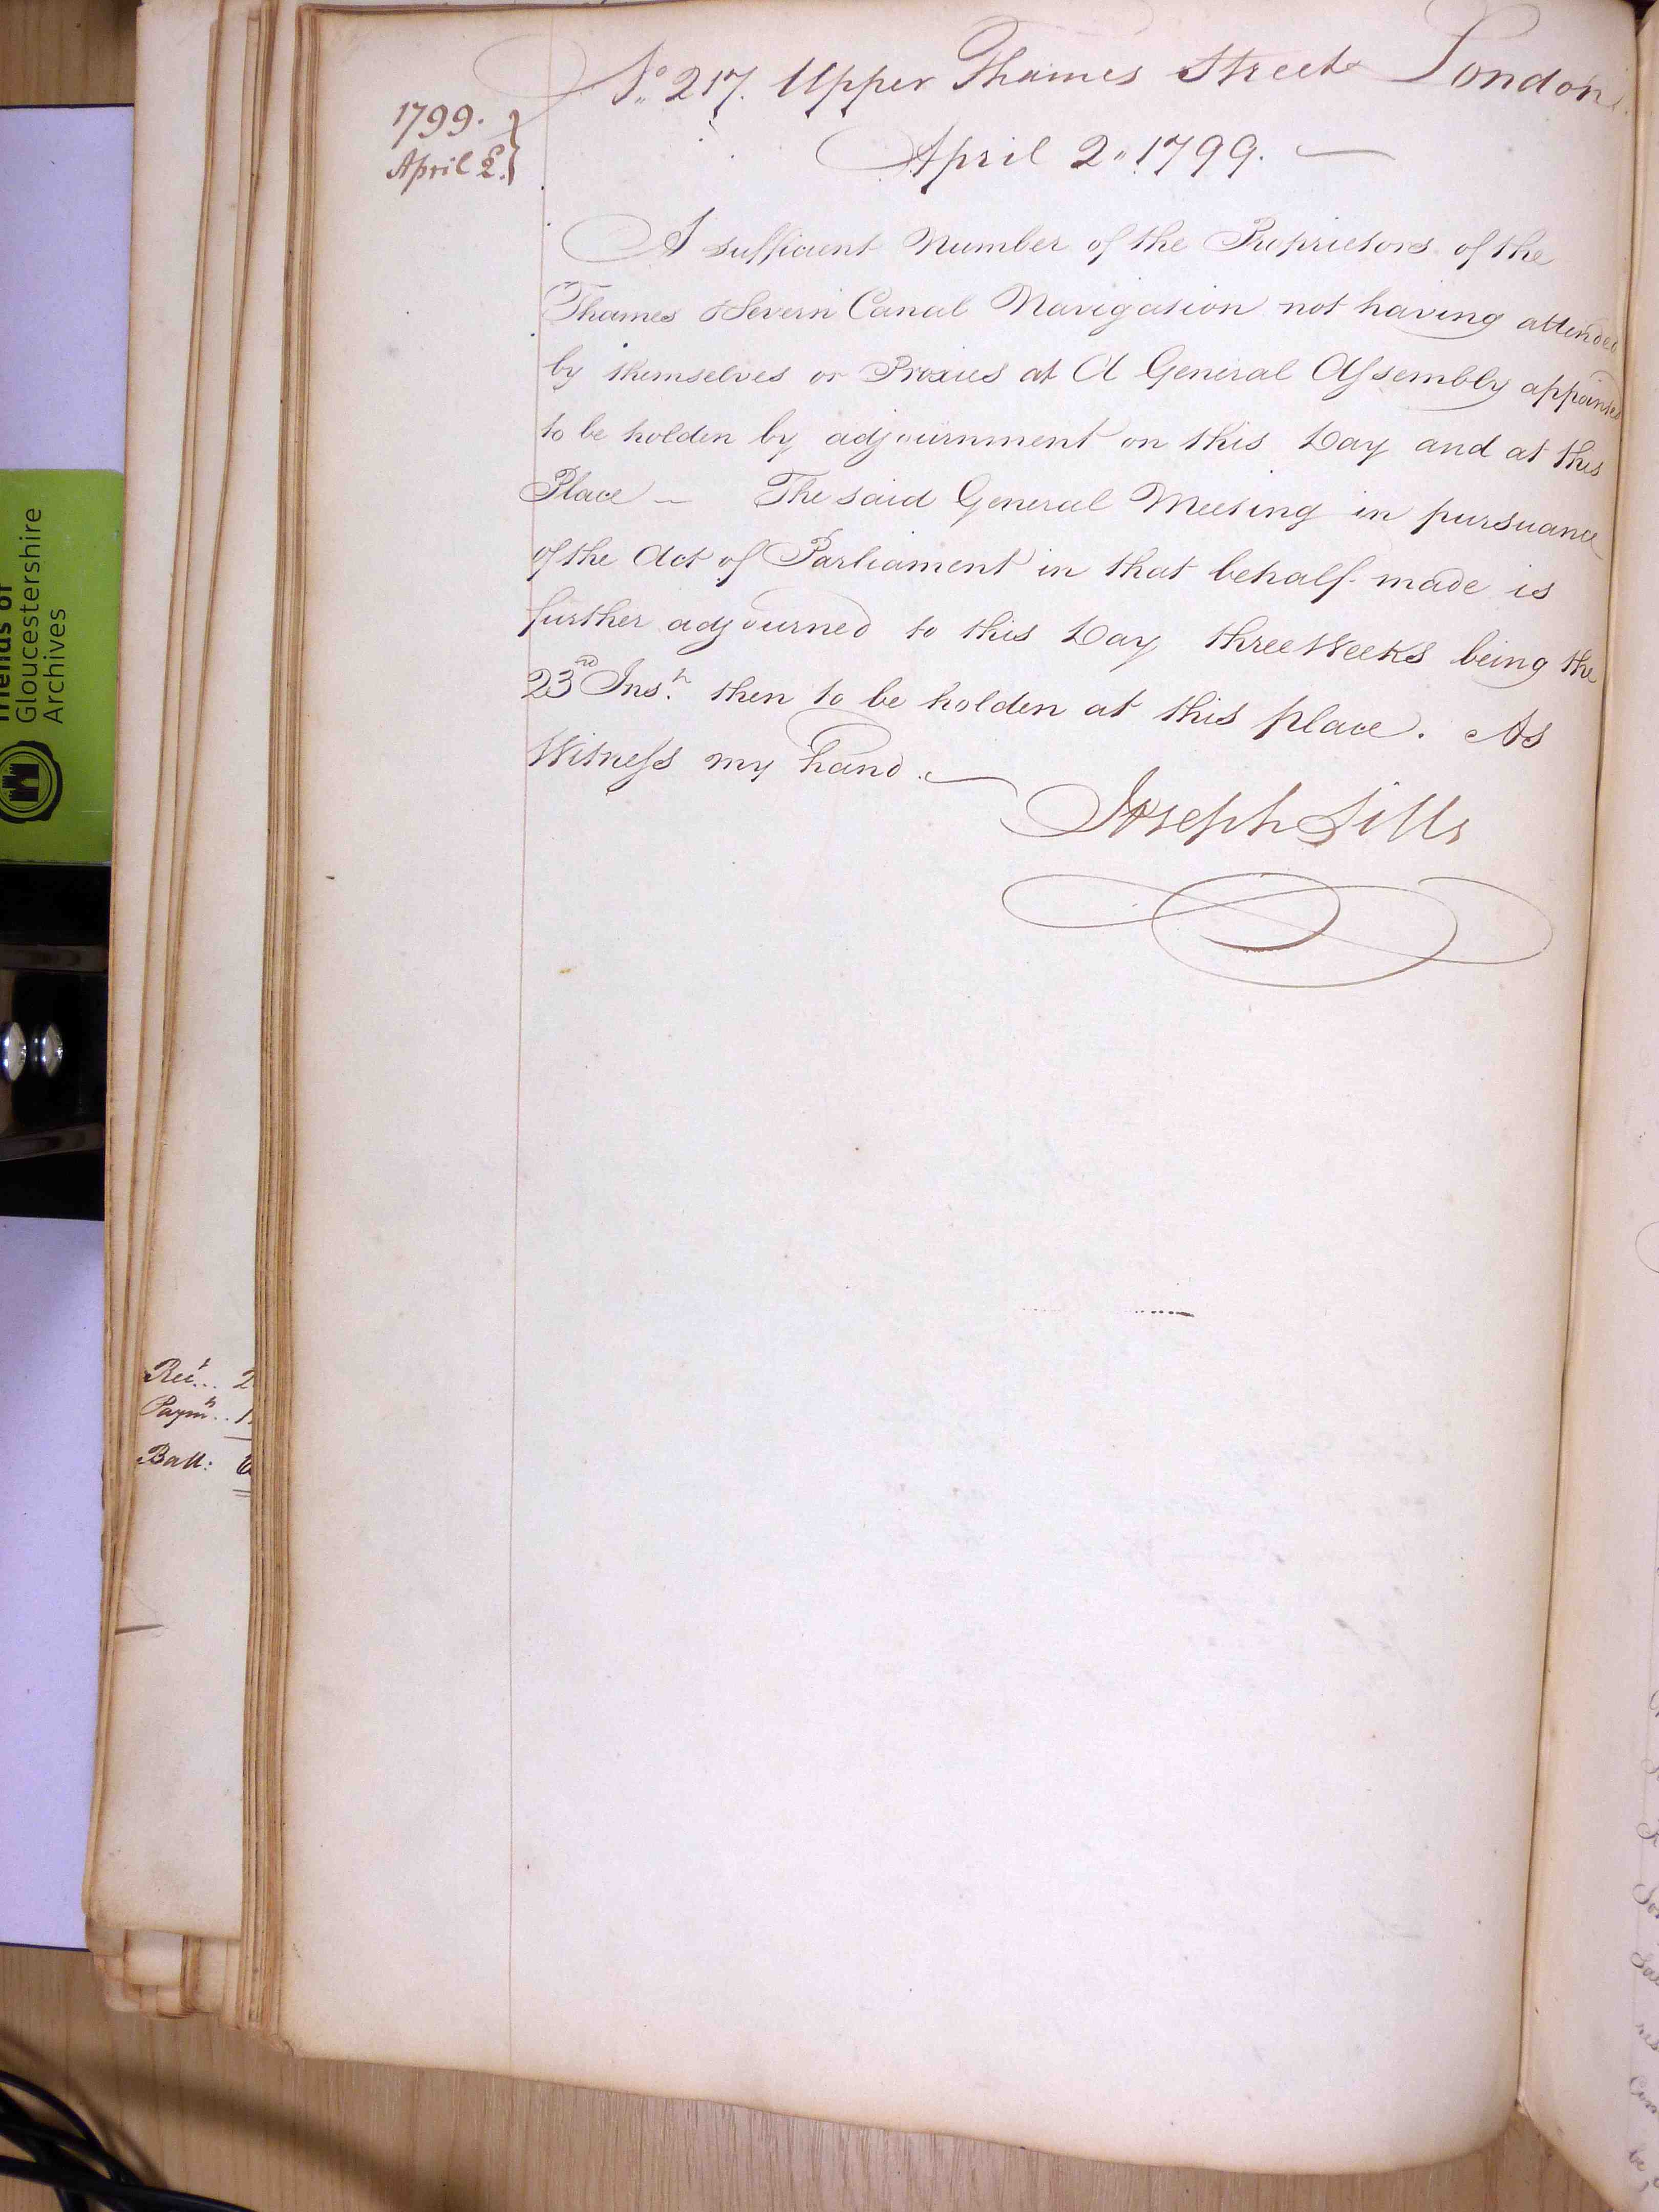 No 217. Upper Thames Street London.
1799.
April 2.
April 2. 1799.
A sufficient Number of the Proprietors of the
Thames & Severn Canal Navigation not having attended
by themselves or Proxies at A General Assembly appointed
to be holden by adjournment on this Day and at this
Place — The said General Meeting in pursuance
of the Act of Parliament in that behalf made is
further adjourned to this Day three Weeks being the
23rd Inst. then to be holden at this place. As
Witness my hand.
Joseph Sills
Friends of
Gloucestershire
Archives
Rect... 2
Paymts.. 1
Ball: 6